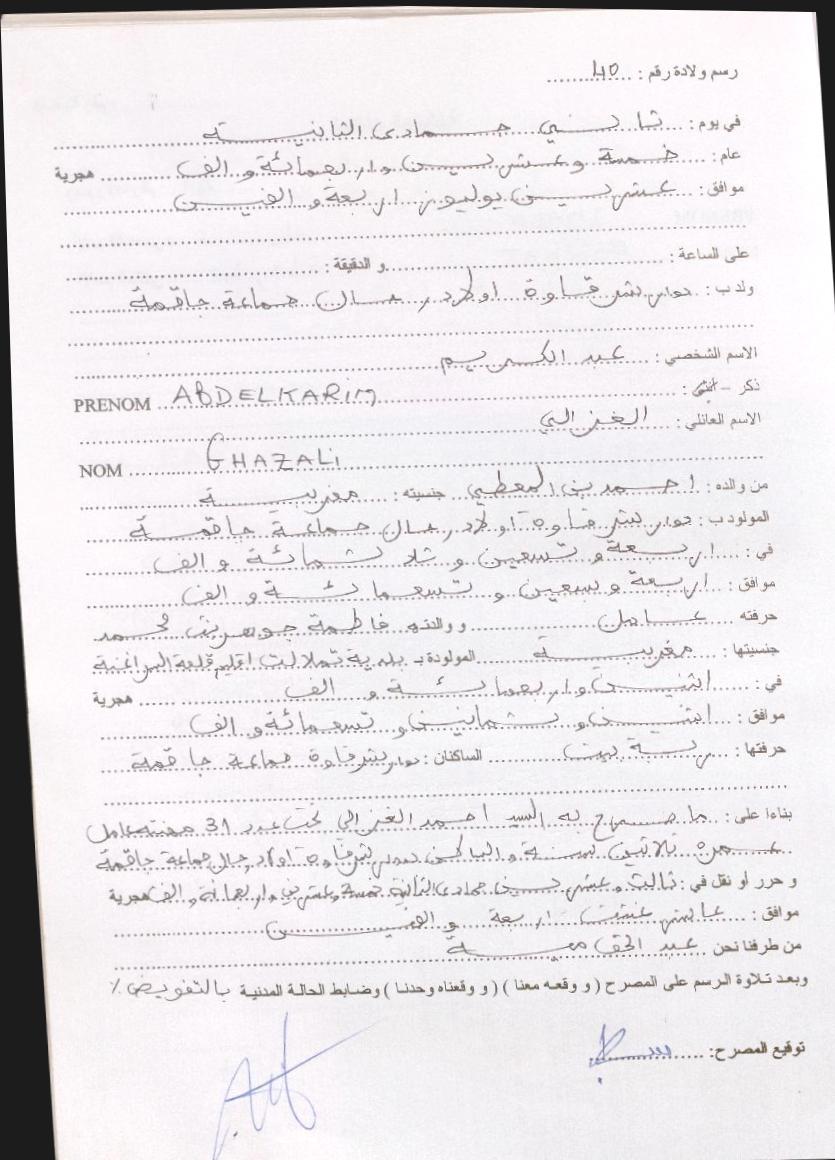 رسم ولادة رقم : 40
في يوم : ثاني جمادى الثانية
عام : خمسة وعشرين واربعمائة والف هجرية
موافق : عشرين يوليوز اربعة والفين
على الساعة : و الدقيقة :
ولد ب : دوار بئر قاوة اولاد رحال جماعة جاقمة
الاسم الشخصي : عبد الكريم
ذكر - انثى : PRENOM ABDELKARIM
الاسم العائلي : الغزالي
NOM GHAZALI
من والده : احمد بن المعطي جنسيته : مغربية
المولود ب : دوار بئر قاوة اولاد رحال جماعة جاقمة
في : اربعة وتسعين وثلاثمائة والف
موافق : اربعة وسبعين وتسعمائة والف
حرفته عامل ووالدته فاطمة جوهر بنت محمد
جنسيتها : مغربية المولودة بـ بلدية تملالت اقليم قلعة السراغنة
في : اثنين واربعمائة والف هجرية
موافق : اثنين وثمانين وتسعمائة والف
حرفتها : ربة بيت الساكنان : دوار بئر قاوة جماعة جاقمة
بناءا على : ما صرح به السيد احمد الغزالي تحت عدد 31 مهنته عامل
عمره ثلاثين سنة والساكن بدوار بئر قاوة اولاد رحال جماعة جاقمة
و حرر أو نقل في : ثالث وعشرين جمادى الثانية خمسة وعشرين واربعمائة والف هجرية
موافق : عاشر غشت اربعة والفين
من طرفنا نحن عبد الحق
وبعد تلاوة الرسم على المصرح ( و وقعه معنا ) ( و وقعناه وحدنا ) وضابط الحالة المدنية بالتفويض ٪
توقيع المصرح :